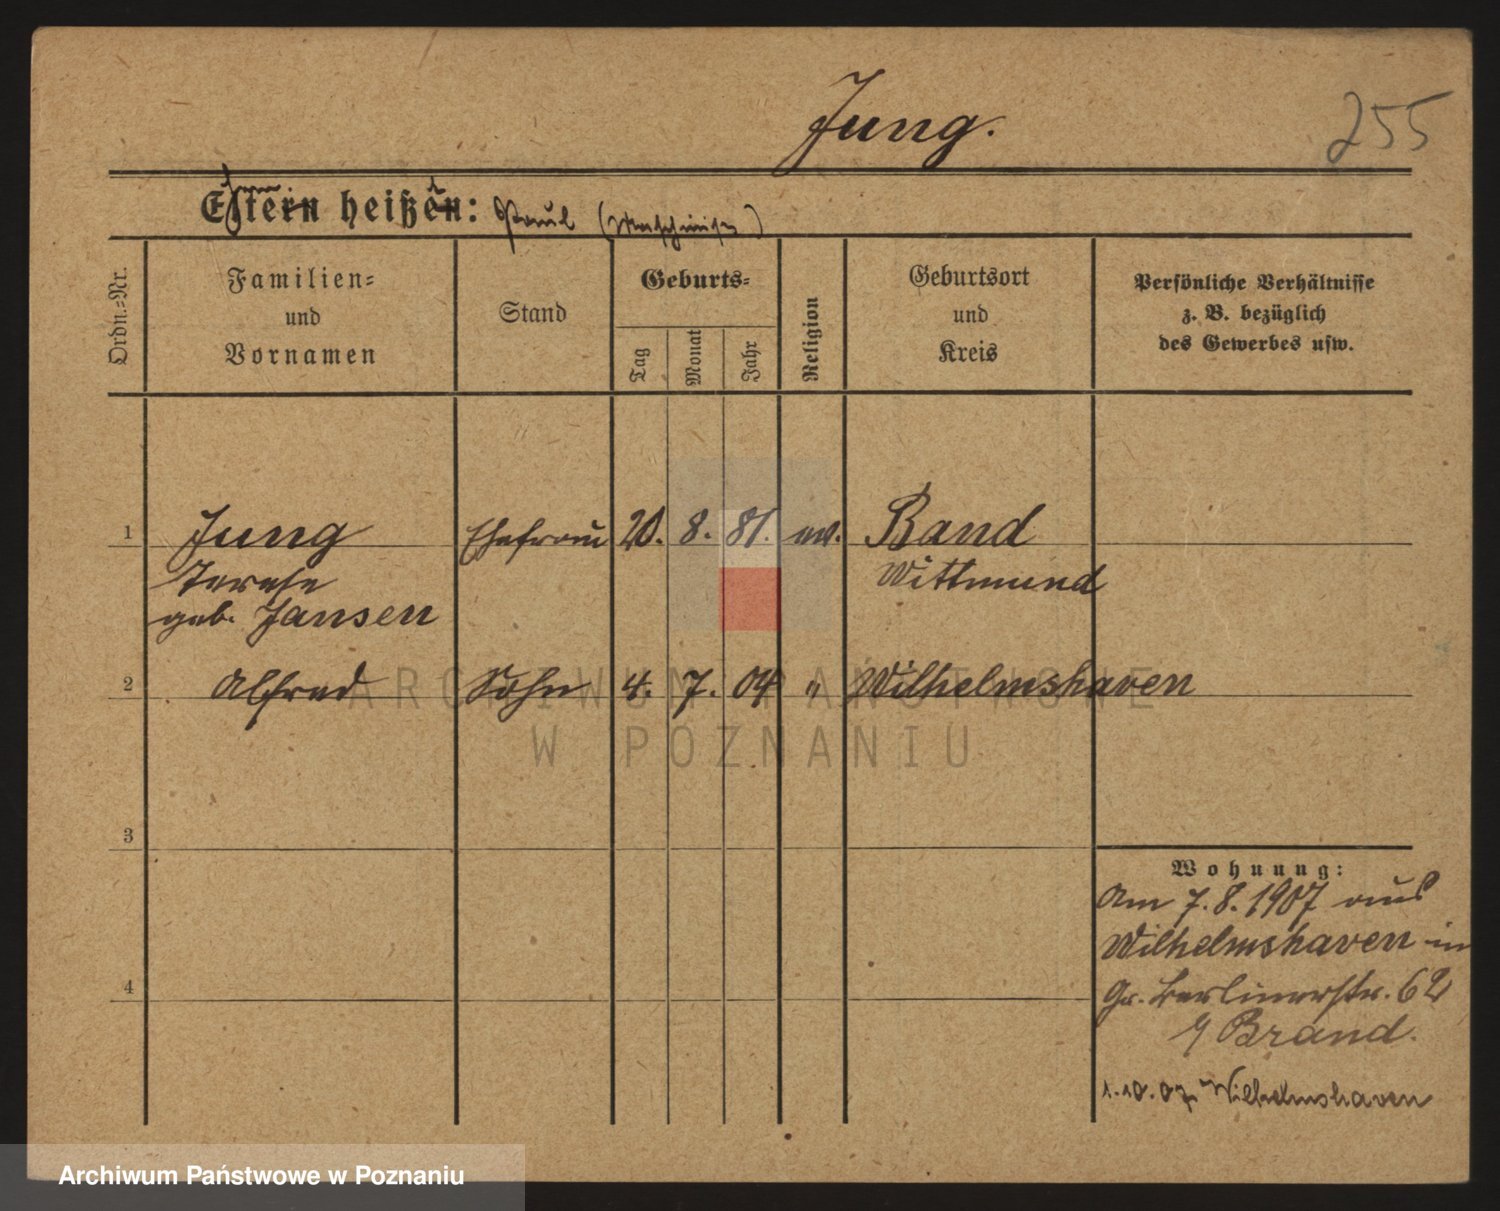 Jung.
255
Eltern heißen: Paul (Maschinist)
Ordn.-Nr.
Familien-
und
Vornamen
Stand
Geburts-
Tag
Monat
Jahr
Religion
Geburtsort
und
Kreis
Persönliche Verhältnisse
z. B. bezüglich
des Gewerbes usw.
1 Jung Ehefrau 20. 8. 81. ev. Band
Terese Wittmund
geb. Jansen
2 Alfred Sohn 4. 7. 04 " Wilhelmshaven
ARCHIWUM PAŃSTWOWE
W POZNANIU
3
Wohnung:
Am 7.8.1907 aus
Wilhelmshaven in
4
Gr. Berlinerstr. 62
Brand.
1.10.07 Wilhelmshaven
Archiwum Państwowe w Poznaniu